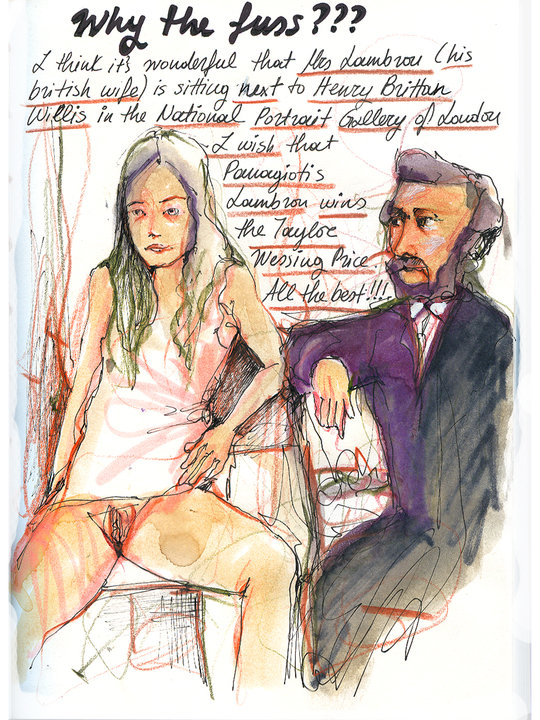 Why the fuss???
I think it's wonderful that Mrs Lambrou (his
british wife) is sitting next to Henry Brittan
Willis in the National Portrait Gallery of London
I wish that
Panagiotis
Lambrou wins
the Taylor
Wessing Price.
All the best!!!